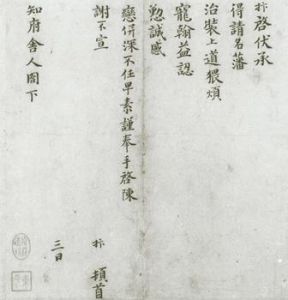 啓伏承
得請名藩
治裝上道猥煩
寵翰益認
懃誠感
戀併深不任早素謹奉手啓陳
謝不宣
知府舍人閣下
頓首
三日